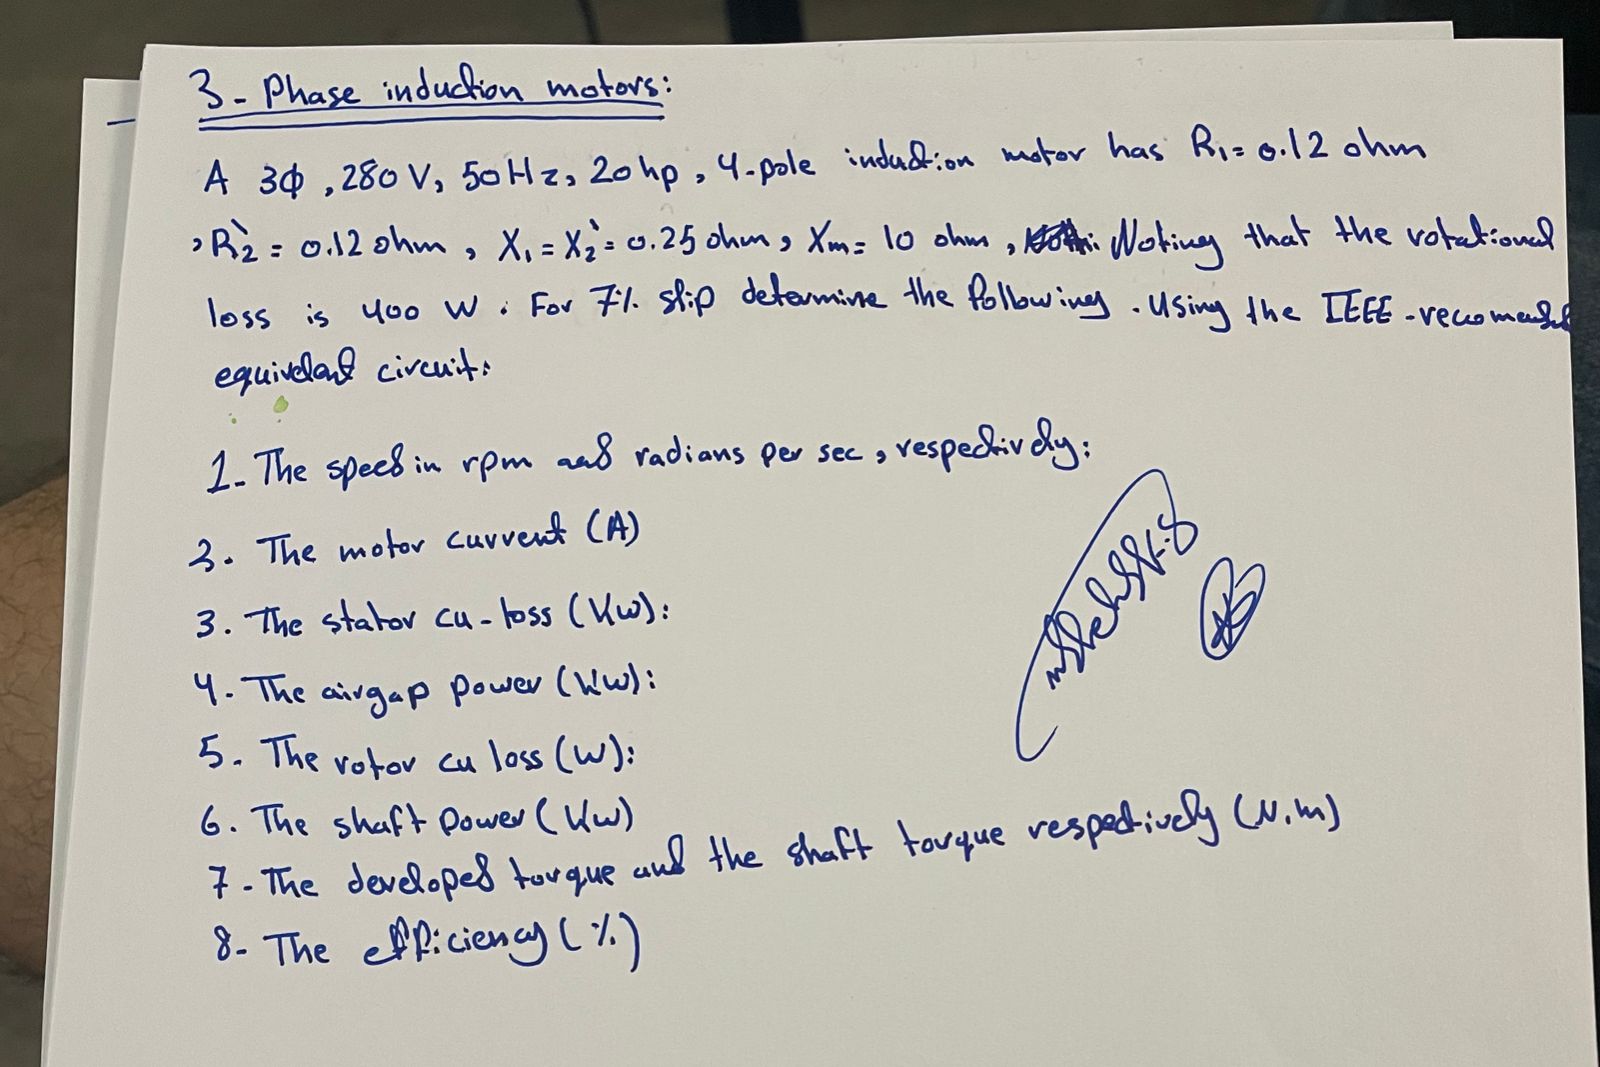 3- Phase induction motors:
A 3ϕ, 280 V, 50 Hz, 20 hp, 4-pole induction motor has R₁= 0.12 ohm
, R₂̀ = 0.12 ohm, X₁ = X₂̀ = 0.25 ohm, Xm= 10 ohm, Noting that the rotational
loss is 400 W. For 7% slip determine the following. Using the IEEE-recomended
equivelant circuit:
1- The speed in rpm and radians per sec, respectively:
2. The motor current (A)
3. The stator cu-loss (Kw):
4. The airgap power (Kw):
5. The rotor cu loss (W):
6. The shaft power (Kw)
7- The developed torque and the shaft torque respectively (N.m)
8- The efficiency (%)